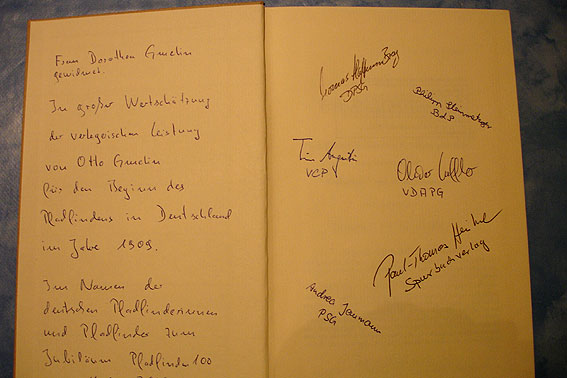 Frau Dorothea Gmelin
gewidmet.
In großer Wertschätzung
der verlegerischen Leistung
von Otto Gmelin
für den Beginn des
Pfadfindens in Deutschland
im Jahre 1909.
Im Namen der
deutschen Pfadfinderinnen
und Pfadfinder zum
Jubiläum Pfadfinden 100
DPSG
Philipp
BdP
Tim
VCP
Oliver
VDAPG
Paul-Thomas Hinkel
Spurbuchverlag
Andrea Jaumann
PSG